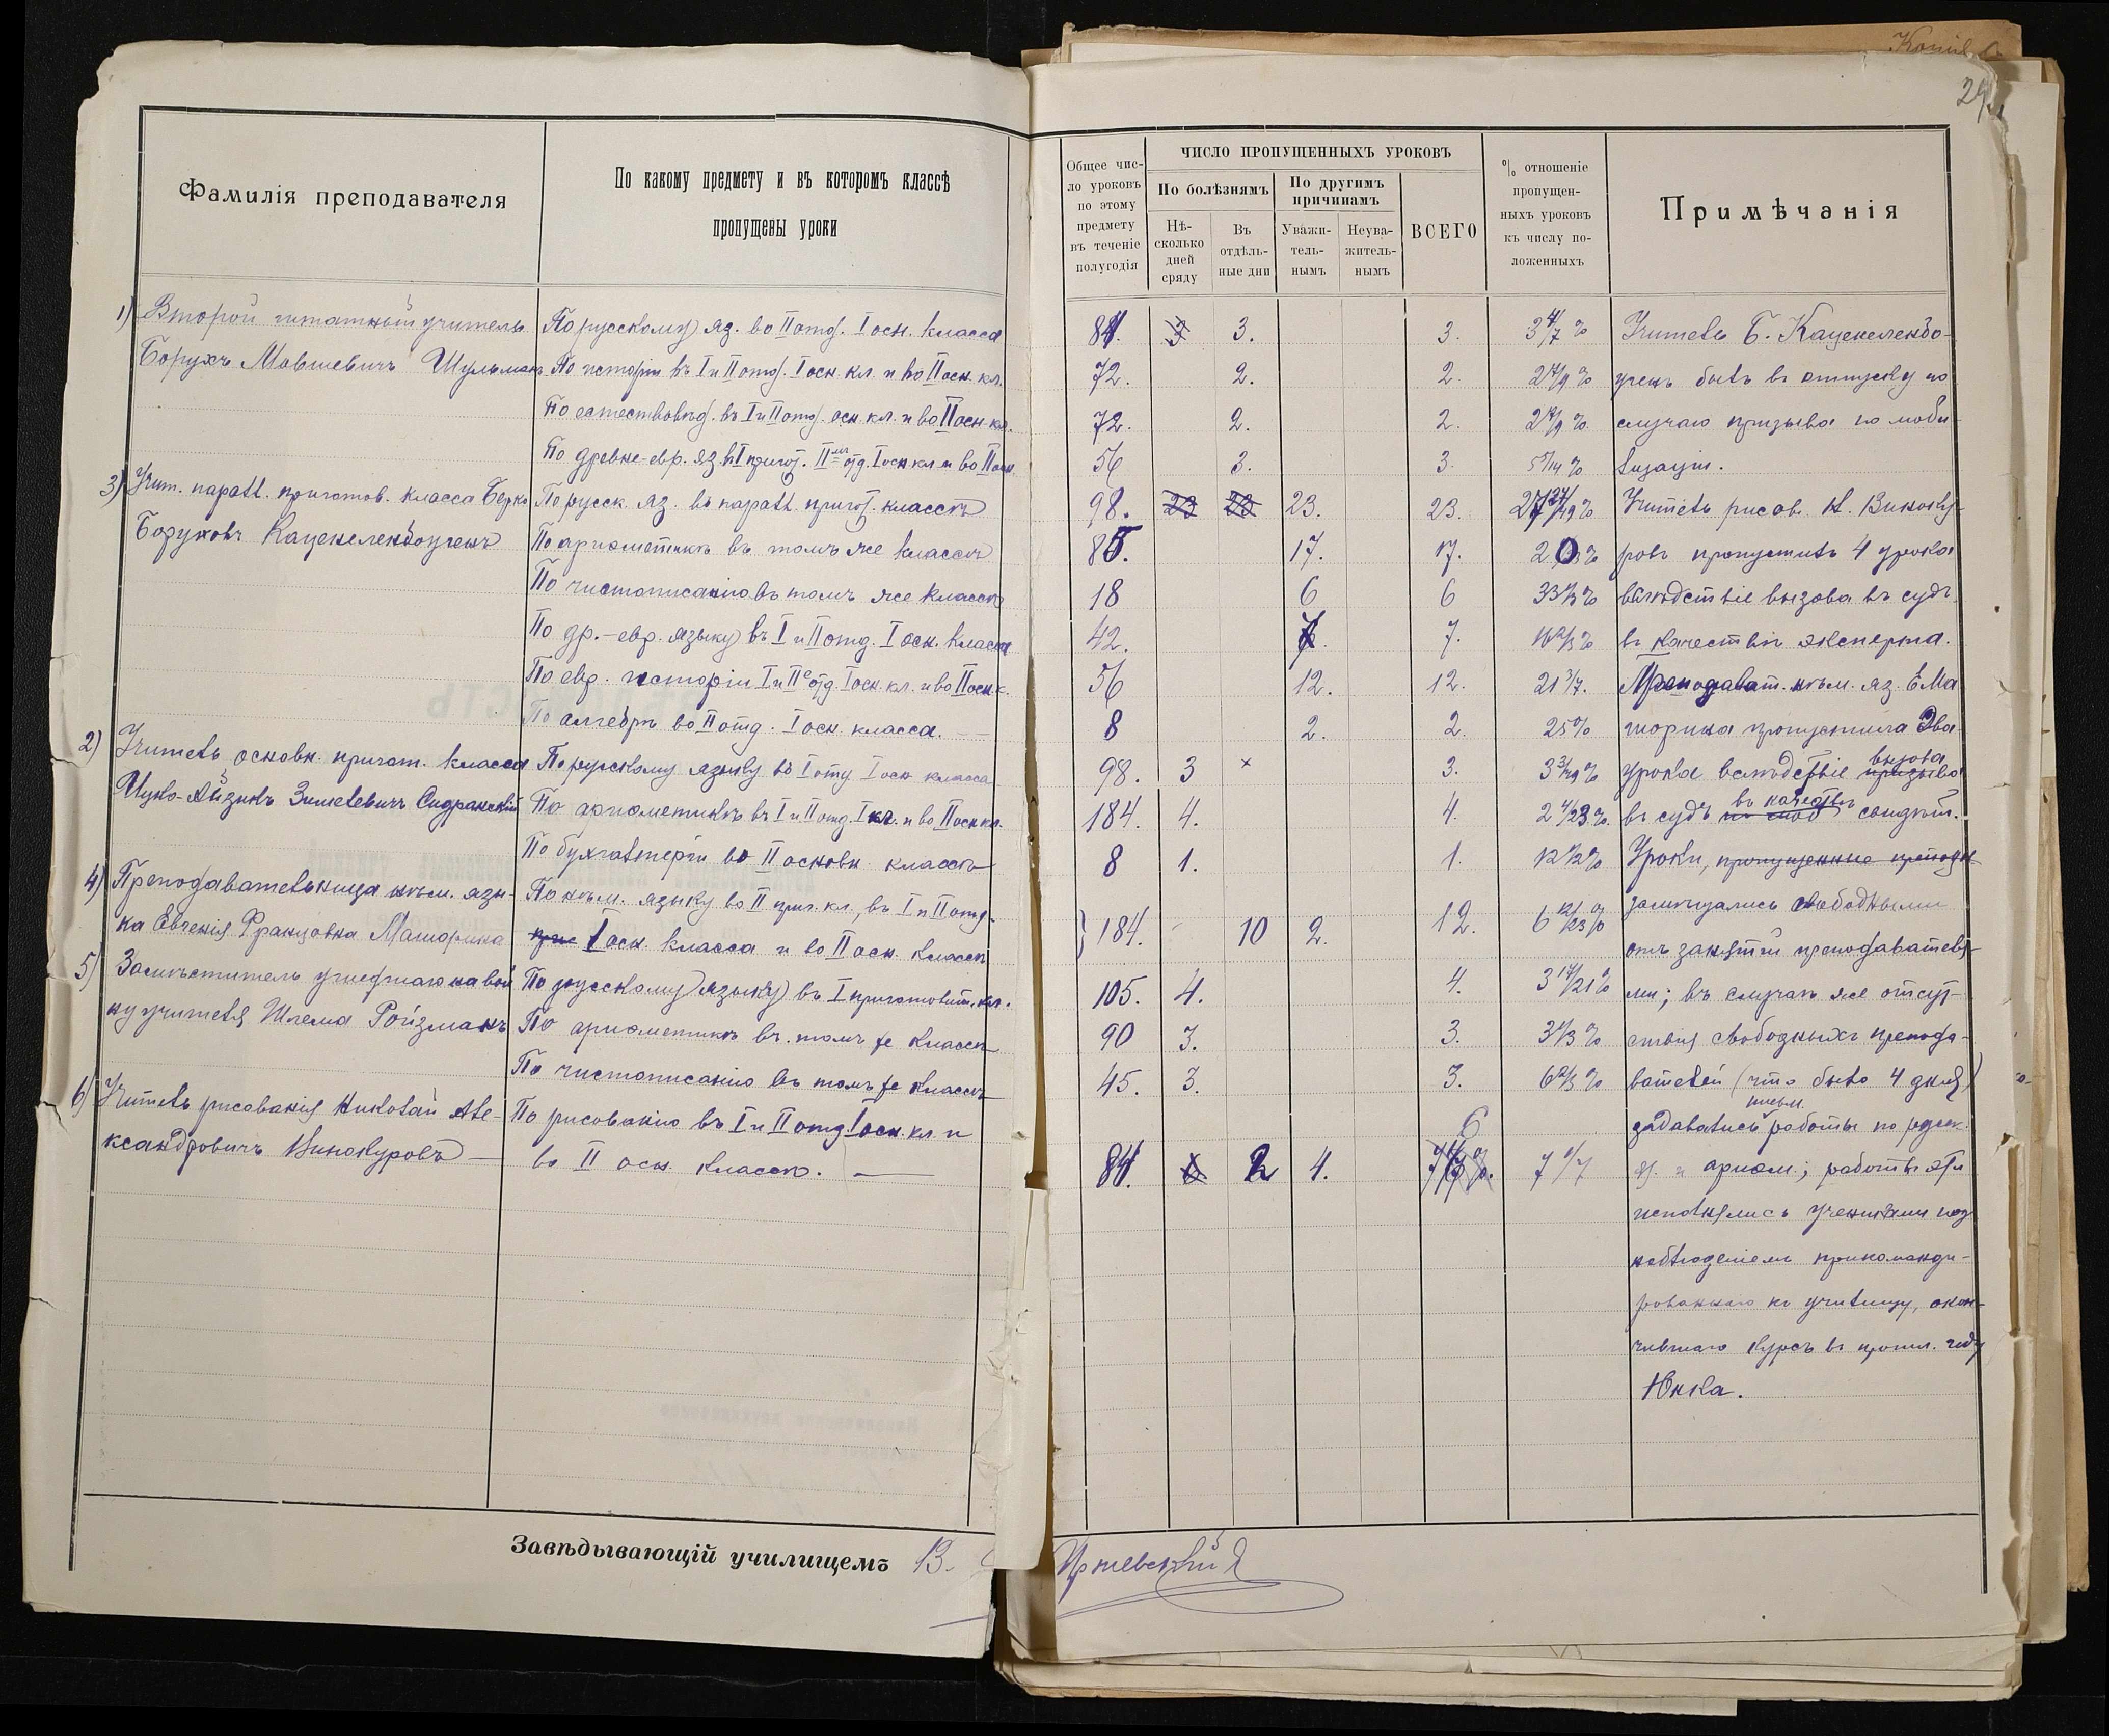 Копія
29
Фамилія преподавателя
По какому предмету и въ которомъ классѣ
пропущены уроки
1) Второй штатный учитель
Борухъ Мовшевичъ Шульманъ
3) Учит. паралл. приготов. класса Берко
Боруховъ Каценеленбоугенъ
2) Учитель основн. пригот. класса
Ицко-Айзикъ Зимелевичъ Сидранскій
4) Преподавательница нѣм. язы-
ка Евгенія Францовна Маторина
5) Замѣститель ушедшаго на вой
ну учителя Шлема Ройзманъ
6) Учитель рисованія Николай Але-
ксандровичъ Винокуровъ —
По русскому яз. во II отд. I осн. класса
По исторіи въ I и II отд. I осн. кл. и во II осн. кл.
По естествовѣд. въ I и II отд. осн. кл. и во II осн. кл.
По древне-евр. яз. въ I пригот. II отд. I осн. кл. и во II осн.
По русск. яз. въ паралл. пригот. классѣ
По ариѳметикѣ въ томъ же классѣ
По чистописанію въ томъ же классѣ
По др.-евр. языку въ I и II отд. I осн. класса
По евр. исторіи I и II отд. I осн. кл. и во II осн. к.
По алгебрѣ во II отд. I осн. класса. —
По русскому языку въ I отд. I осн. класса
По ариѳметикѣ въ I и II отд. I кл. и во II осн. кл.
По бухгалтеріи во II основн. классѣ
По нѣм. языку во II приг. кл., въ I и II отд.
при I осн. класса и во II осн. классѣ
По русскому языку въ I приготовит. кл.
По ариѳметикѣ въ томъ же классѣ
По чистописанію въ томъ же классѣ
По рисованію въ I и II отд. I осн. кл. и
во II осн. классѣ. —
Завѣдывающій училищемъ В.
Общее чис-
ло уроковъ
по этому
предмету
въ теченіе
полугодія
ЧИСЛО ПРОПУЩЕННЫХЪ УРОКОВЪ
По болѣзнямъ
По другимъ
причинамъ
Нѣ-
сколько
дней
сряду
Въ
отдѣль-
ные дни
Уважи-
тель-
нымъ
Неува-
житель-
нымъ
ВСЕГО
% отношеніе
пропущен-
ныхъ уроковъ
къ числу по-
ложенныхъ
Примѣчанія
84. 3 3. 3. 3 4/7 %
72. 2. 2. 2 7/9 %
72. 2. 2. 2 7/9 %
56 3. 3. 5 5/14 %
98. 23 23 23. 23. 23/49 %
85. 17. 17. 20 %
18 6 6 33 1/3 %
42. 7. 7. 16 2/3 %
56 12. 12. 21 3/7.
8 2. 2. 25 %
98. 3 × 3. 3 3/49 %
184. 4. 4. 2 4/23 %.
8 1. 1. 12 1/2 %
184. 10 2. 12. 6 12/23 %
105. 4. 4. 3 17/21 %
90 3. 3. 3 1/3 %
45. 3. 3. 6 2/3 %
84. 2 4. 6 7 1/7
Учитель Б. Каценеленбо-
угенъ былъ въ отпуску по
случаю призыва по моби-
лизаціи.
Учитель рисов. Н. Виноку-
ровъ пропустилъ 4 урока
вслѣдствіе вызова въ судъ
въ качествѣ эксперта.
Преподават. нѣм. яз. Е. Ма
торина пропустила два
урока вслѣдствіе призыва вызова
въ судъ въ качествѣ свидѣт.
Уроки, пропущенные преподав
замѣщались свободными
отъ занятій преподавателя-
ми; въ случаѣ же отсут-
ствія свободныхъ препода-
вателей (что было 4 дня)
задавались письм. работы по русск.
яз. и ариѳм.; работы эти
исполнялись учениками под
наблюденіемъ прикоманди-
рованнаго къ училищу, окон-
чившаго курсъ въ прошл. году
Юнка.